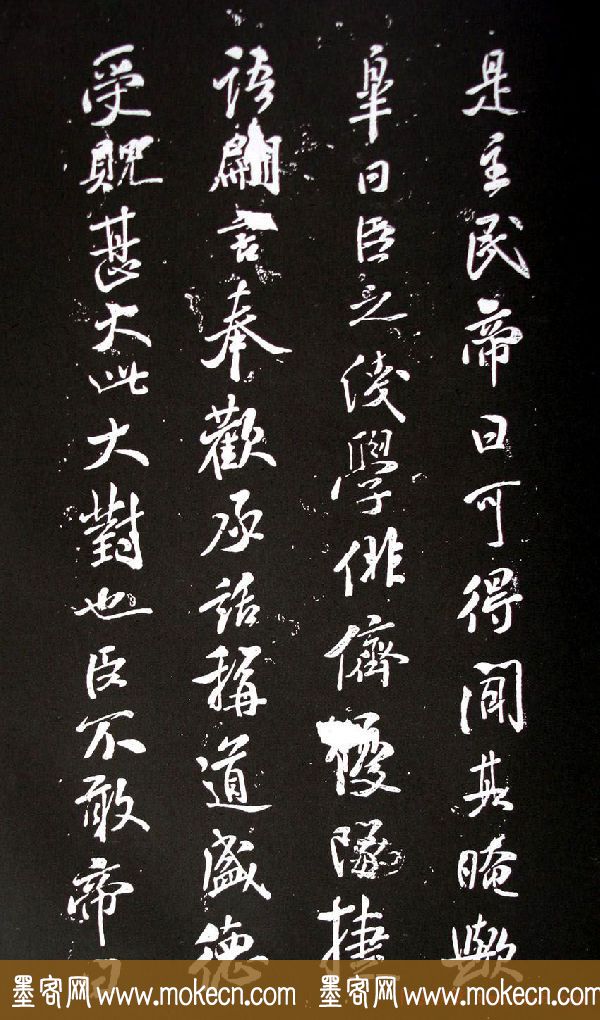 是主民帝曰可得聞其晻歟
皐曰臣之俴學俳儕優捷
語翩言奉歡承話稱道盛德
受貺甚大此大對也臣不敢帝曰
墨客网www.mokecn.com 墨客网www.mokecn.com